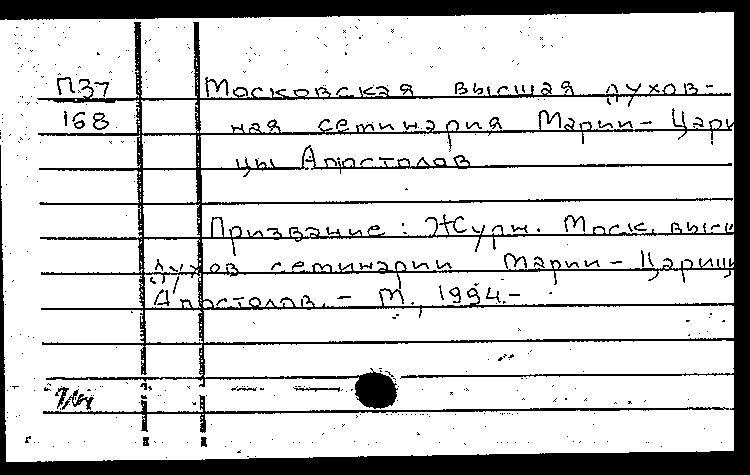 П37 Московская высшая духов-
168 ная семинария Марии - Цари
цы Апостолов
Призвание : Журн. Моск. высш
духов семинарии Марии - Цариц
Апостолов. - М., 1994. -